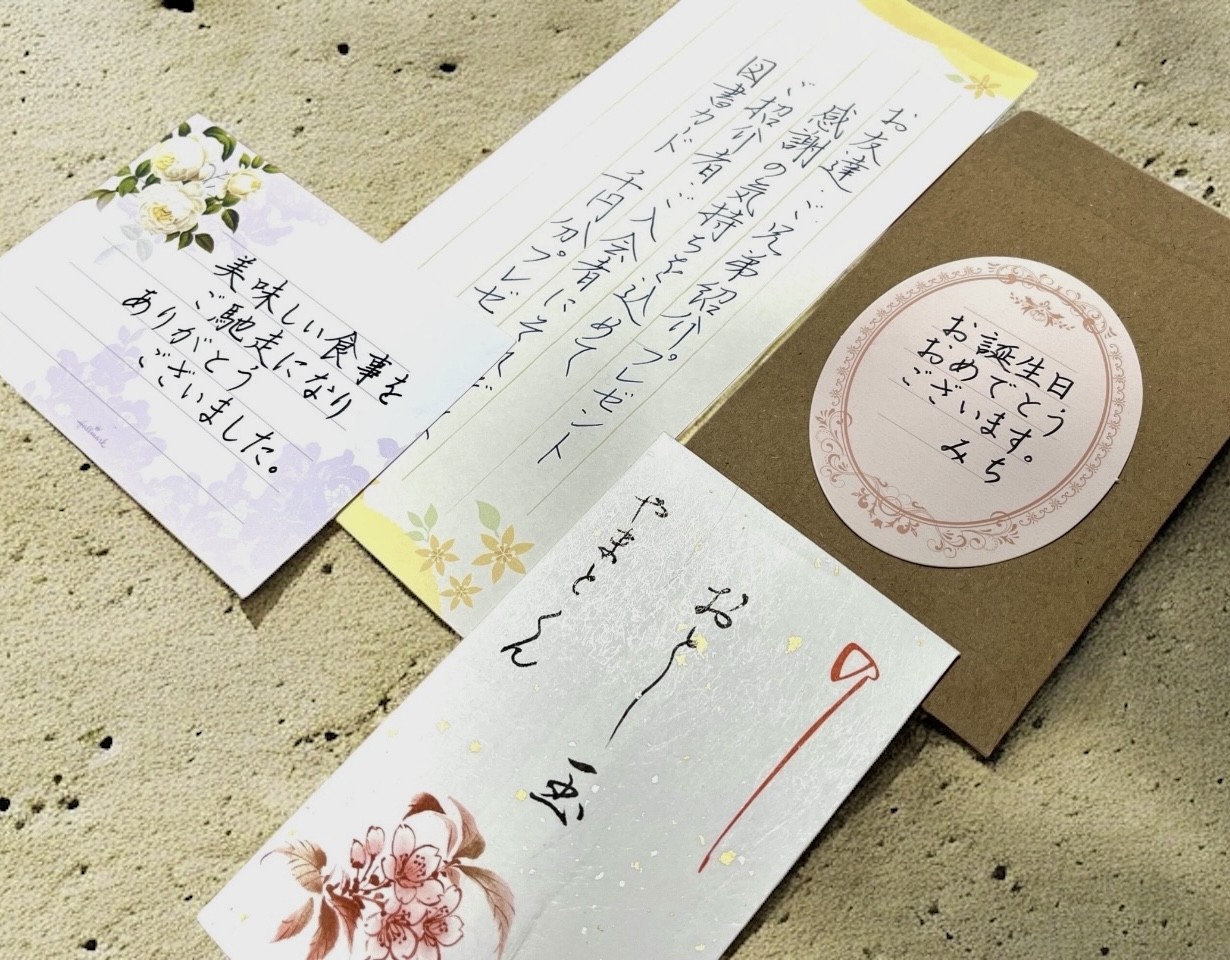 美味しい食事を
ご馳走になり
ありがとう
ございました。
お友達・ご兄弟紹介プレゼント
感謝の気持ちを込めて
ご紹介者・ご入会者にそれぞれ
図書カード 千円分プレゼ
お誕生日
おめでとう
ございます。
みち
おとし玉
やまとくん